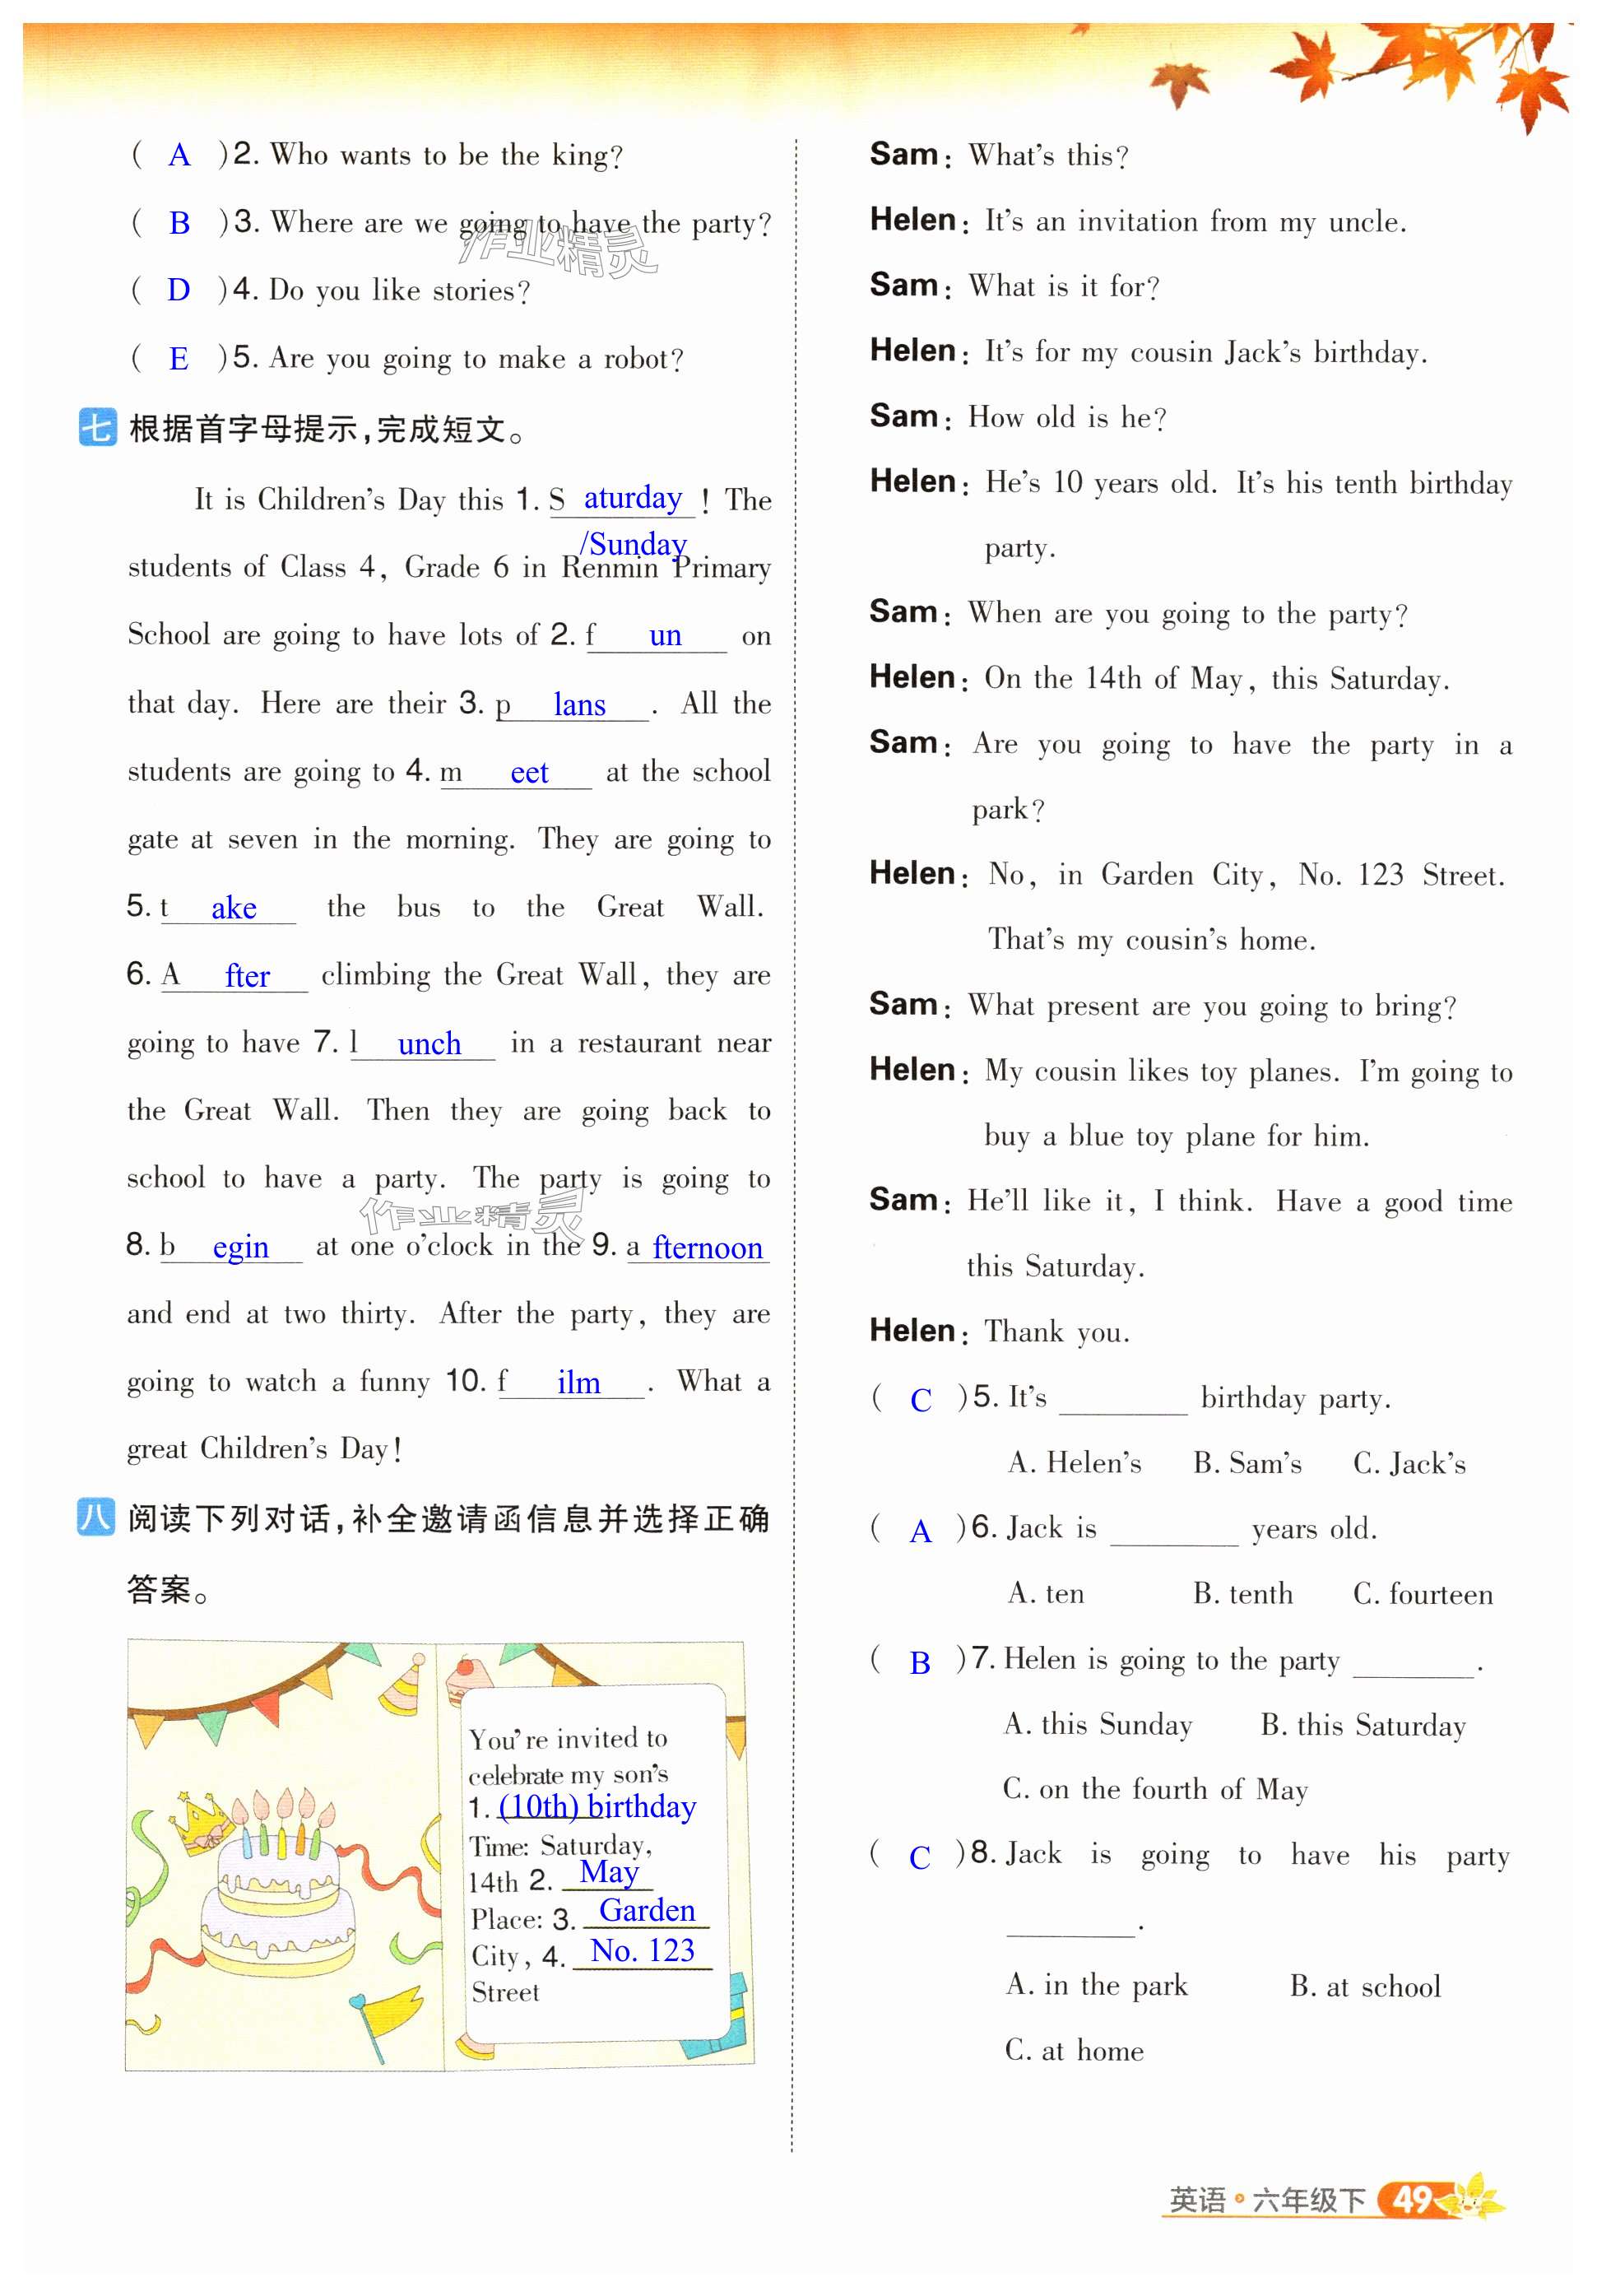 ( A )2. Who wants to be the king?
( B )3. Where are we going to have the party?
作业精灵
( D )4. Do you like stories?
( E )5. Are you going to make a robot?
七 根据首字母提示,完成短文。
It is Children's Day this 1. S aturday ! The
/Sunday
students of Class 4, Grade 6 in Renmin Primary
School are going to have lots of 2. f un on
that day. Here are their 3. p lans . All the
students are going to 4. m eet at the school
gate at seven in the morning. They are going to
5. t ake the bus to the Great Wall.
6. A fter climbing the Great Wall, they are
going to have 7. l unch in a restaurant near
the Great Wall. Then they are going back to
school to have a party. The party is going to
作业精灵
8. b egin at one o'clock in the 9. a fternoon
and end at two thirty. After the party, they are
going to watch a funny 10. f ilm . What a
great Children's Day!
八 阅读下列对话,补全邀请函信息并选择正确
答案。
You're invited to
celebrate my son's
1. (10th) birthday
Time: Saturday,
14th 2. May
Place: 3. Garden
City, 4. No. 123
Street
Sam: What's this?
Helen: It's an invitation from my uncle.
Sam: What is it for?
Helen: It's for my cousin Jack's birthday.
Sam: How old is he?
Helen: He's 10 years old. It's his tenth birthday
party.
Sam: When are you going to the party?
Helen: On the 14th of May, this Saturday.
Sam: Are you going to have the party in a
park?
Helen: No, in Garden City, No. 123 Street.
That's my cousin's home.
Sam: What present are you going to bring?
Helen: My cousin likes toy planes. I'm going to
buy a blue toy plane for him.
Sam: He'll like it, I think. Have a good time
this Saturday.
Helen: Thank you.
( C )5. It's ________ birthday party.
A. Helen's B. Sam's C. Jack's
( A )6. Jack is ________ years old.
A. ten B. tenth C. fourteen
( B )7. Helen is going to the party ________.
A. this Sunday B. this Saturday
C. on the fourth of May
( C )8. Jack is going to have his party
________.
A. in the park B. at school
C. at home
英语·六年级下 49